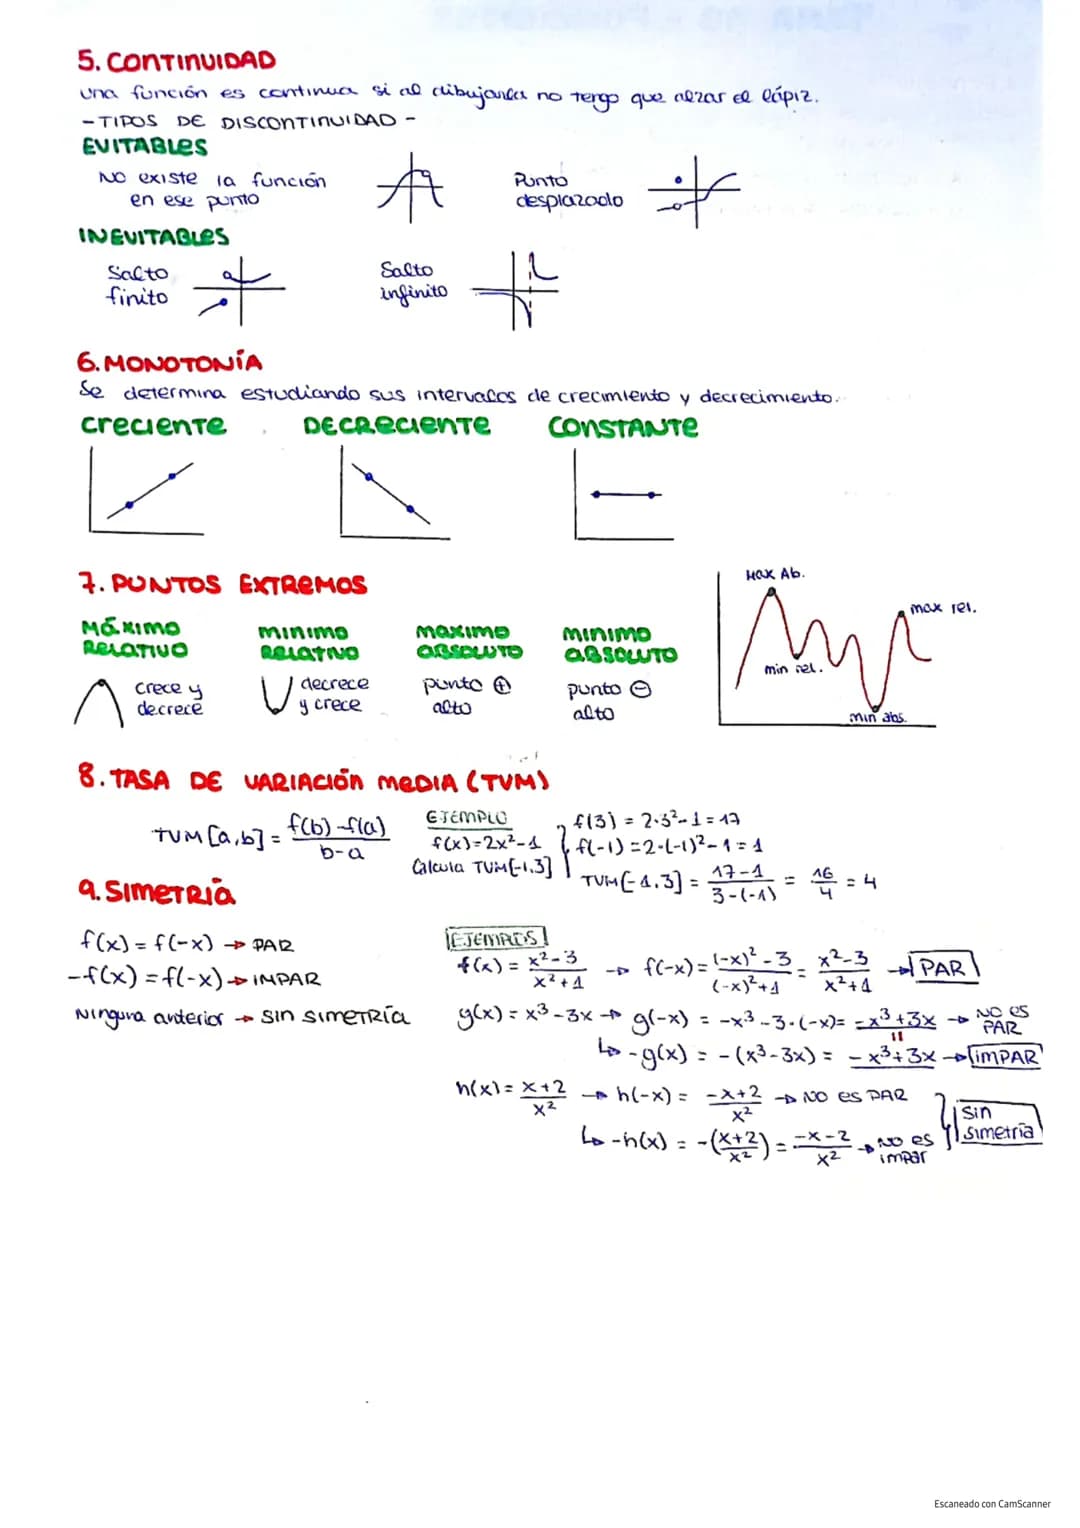 5. CONTINUIDAD
Una función es continua si al dibujarla no tengo que alzar el lápiz.
- TIPOS DE DISCONTINUIDAD -
EVITABLES
No existe la función
en ese punto
Punto
desplazado
INEVITABLES
Salto
finito
Salto
infinito
6. MONOTONÍA
Se determina estudiando sus intervalos de crecimiento y decrecimiento.
CRECIENTE DECRECIENTE CONSTANTE
7. PUNTOS EXTREMOS
MÁXIMO
RELATIVO
crece y
decrece
MINIMO
RELATIVO
decrece
y crece
MAXIMO
ABSOLUTO
punto ⊕
alto
MINIMO
ABSOLUTO
punto ⊖
alto
Max Ab.
max rel.
min rel.
min abs.
8. TASA DE VARIACIÓN MEDIA (TVM)
TVM [a,b] = f(b)-f(a) / b-a
EJEMPLO
f(x)=2x²-1
Calcula TVM[-1,3]
f(3) = 2·3²-1 = 17
f(-1) = 2·(-1)²-1 = 1
TVM[-1,3] = 17-1 / 3-(-1) = 16/4 = 4
9. SIMETRÍA
f(x) = f(-x) → PAR
-f(x) = f(-x) → IMPAR
Ninguna anterior → SIN SIMETRÍA
EJEMPLOS
f(x) = x²-3 / x²+1 → f(-x) = (-x)²-3 / (-x)²+1 = x²-3 / x²+1 → PAR
g(x) = x³-3x → g(-x) = -x³-3·(-x) = -x³+3x → NO ES PAR
"
↳ -g(x) = -(x³-3x) = -x³+3x → IMPAR
h(x) = x+2 / x² → h(-x) = -x+2 / x² → NO ES PAR
↳ -h(x) = -(x+2 / x²) = -x-2 / x² → NO ES impar
Sin
simetría
Escaneado con CamScanner